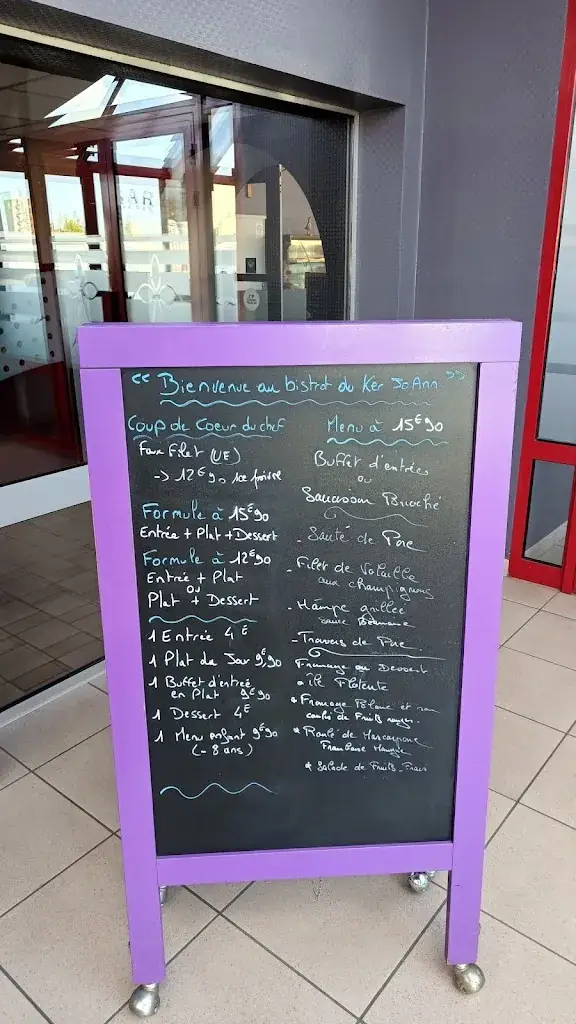 « Bienvenue au bistrot du Ker JoAnn »
Coup de Coeur du chef
Faux Filet (UE)
-> 12€90
Formule à 15€90
Entrée + Plat + Dessert
Formule à 12€90
Entrée + Plat
ou
Plat + Dessert
1 Entrée 4€
1 Plat du Jour 9€90
1 Buffet d'entrée
en Plat 9€90
1 Dessert 4€
1 Menu enfant 9€90
(- 8 ans)
Menu à 15€90
Buffet d'entrées
ou
Saucisson Brioché
- Sauté de Porc
- Filet de Volaille
aux champignons
- Hampe grillée
sauce
- Travers de Porc
Fromage ou Dessert
* île Flotante
* Fromage Blanc et son
coulis de Fruits rouges
* Roulé de Mascarpone
Framboise Mangue
* Salade de Fruits Frais